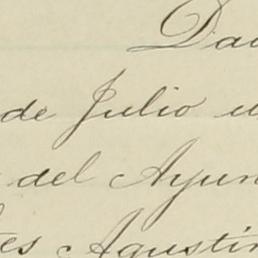 Da
de Julio
del Ayun
tes Agustín